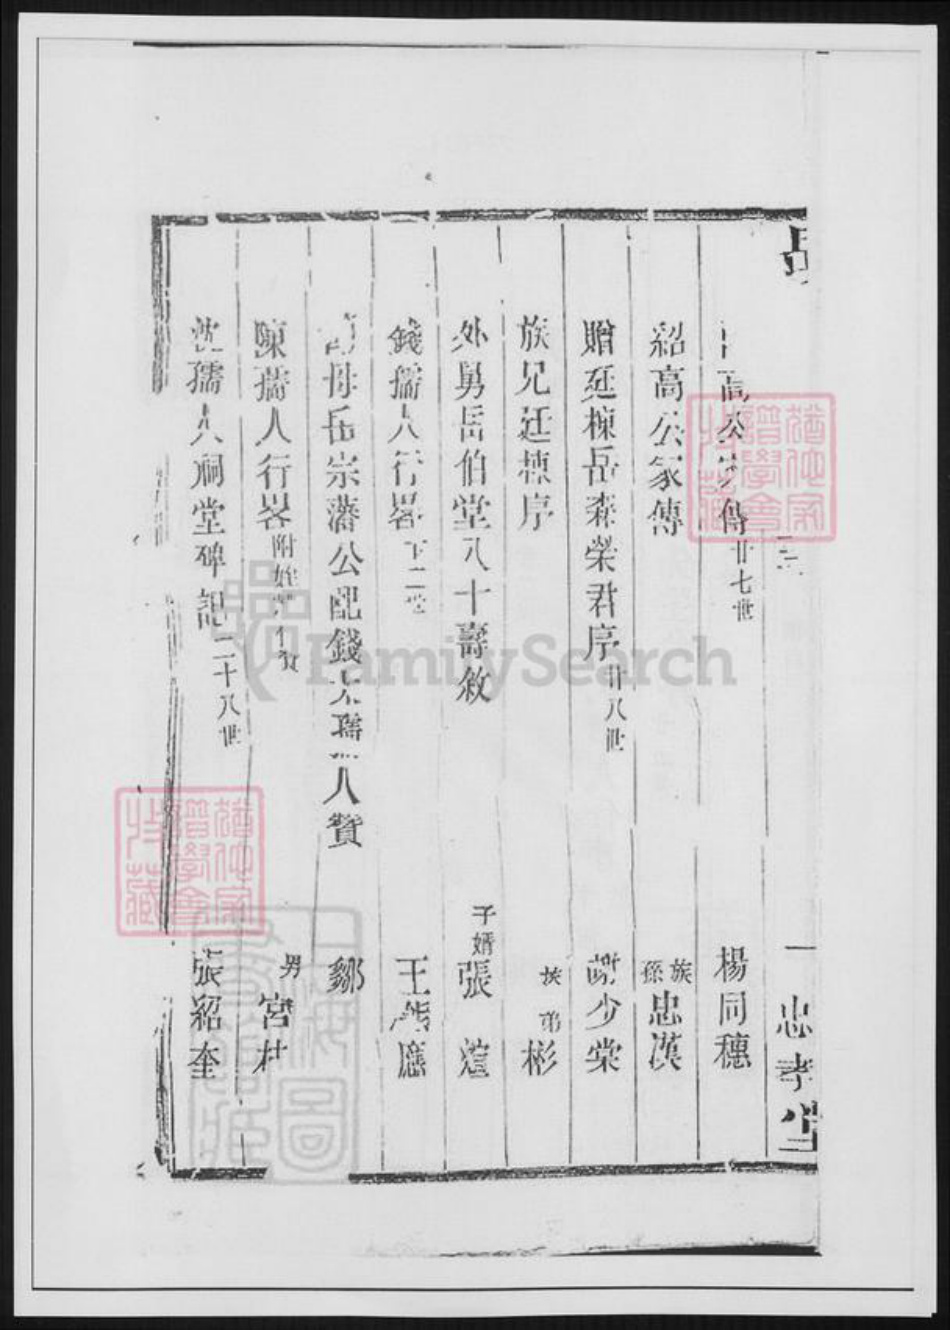 岳
一 忠孝堂
高公家傳廿七世 楊同穗
紹高公家傳 族孫忠漢
贈廷棟岳森榮君序廿八世 謝少棠
族兄廷棟序 族弟彬
外舅岳伯堂八十壽敘 子婿張萱
錢孺人行畧 王應
母岳宗藩公配錢太孺人贊 鄒
陳孺人行畧附姪 男宮杜
沈孺人祠堂碑記二十八世 張紹奎
FamilySearch